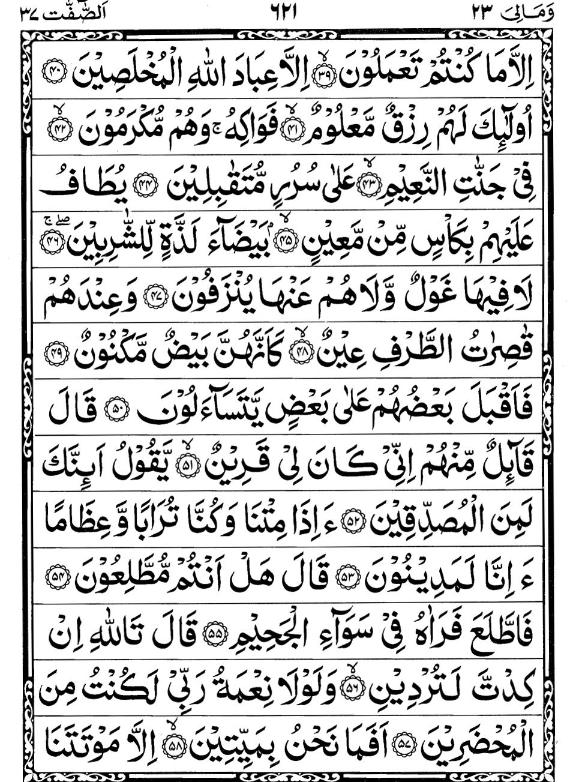 وَمَالِیَ ٢٣ ٦٢١ اَلصّٰٓفّٰت ٣٧
اِلَّا مَا كُنْتُمْ تَعْمَلُوْنَ ۙ﴿۳۹﴾ اِلَّا عِبَادَ اللّٰهِ الْمُخْلَصِيْنَ ﴿۴۰﴾
اُولٰٓئِكَ لَهُمْ رِزْقٌ مَّعْلُوْمٌ ۙ﴿۴۱﴾ فَوَاكِهُ ۚ وَهُمْ مُّكْرَمُوْنَ ۙ﴿۴۲﴾
فِيْ جَنّٰتِ النَّعِيْمِ ۙ﴿۴۳﴾ عَلٰى سُرُرٍ مُّتَقٰبِلِيْنَ ﴿۴۴﴾ يُطَافُ
عَلَيْهِمْ بِكَاْسٍ مِّنْ مَّعِيْنٍۭ ۙ﴿۴۵﴾ بَيْضَآءَ لَذَّةٍ لِّلشّٰرِبِيْنَ ۖۚ﴿۴۶﴾
لَا فِيْهَا غَوْلٌ وَّلَا هُمْ عَنْهَا يُنْزَفُوْنَ ﴿۴۷﴾ وَعِنْدَهُمْ
قٰصِرٰتُ الطَّرْفِ عِيْنٌ ۙ﴿۴۸﴾ كَاَنَّهُنَّ بَيْضٌ مَّكْنُوْنٌ ﴿۴۹﴾
فَاَقْبَلَ بَعْضُهُمْ عَلٰى بَعْضٍ يَّتَسَآءَلُوْنَ ﴿۵۰﴾ قَالَ
قَآئِلٌ مِّنْهُمْ اِنِّيْ كَانَ لِيْ قَرِيْنٌ ۙ﴿۵۱﴾ يَّقُوْلُ اَئِنَّكَ
لَمِنَ الْمُصَدِّقِيْنَ ﴿۵۲﴾ ءَاِذَا مِتْنَا وَكُنَّا تُرَابًا وَّعِظَامًا
ءَاِنَّا لَمَدِيْنُوْنَ ﴿۵۳﴾ قَالَ هَلْ اَنْتُمْ مُّطَّلِعُوْنَ ﴿۵۴﴾
فَاطَّلَعَ فَرَاٰهُ فِيْ سَوَآءِ الْجَحِيْمِ ﴿۵۵﴾ قَالَ تَاللّٰهِ اِنْ
كِدْتَّ لَتُرْدِيْنِ ۙ﴿۵۶﴾ وَلَوْلَا نِعْمَةُ رَبِّيْ لَكُنْتُ مِنَ
الْمُحْضَرِيْنَ ﴿۵۷﴾ اَفَمَا نَحْنُ بِمَيِّتِيْنَ ۙ﴿۵۸﴾ اِلَّا مَوْتَتَنَا